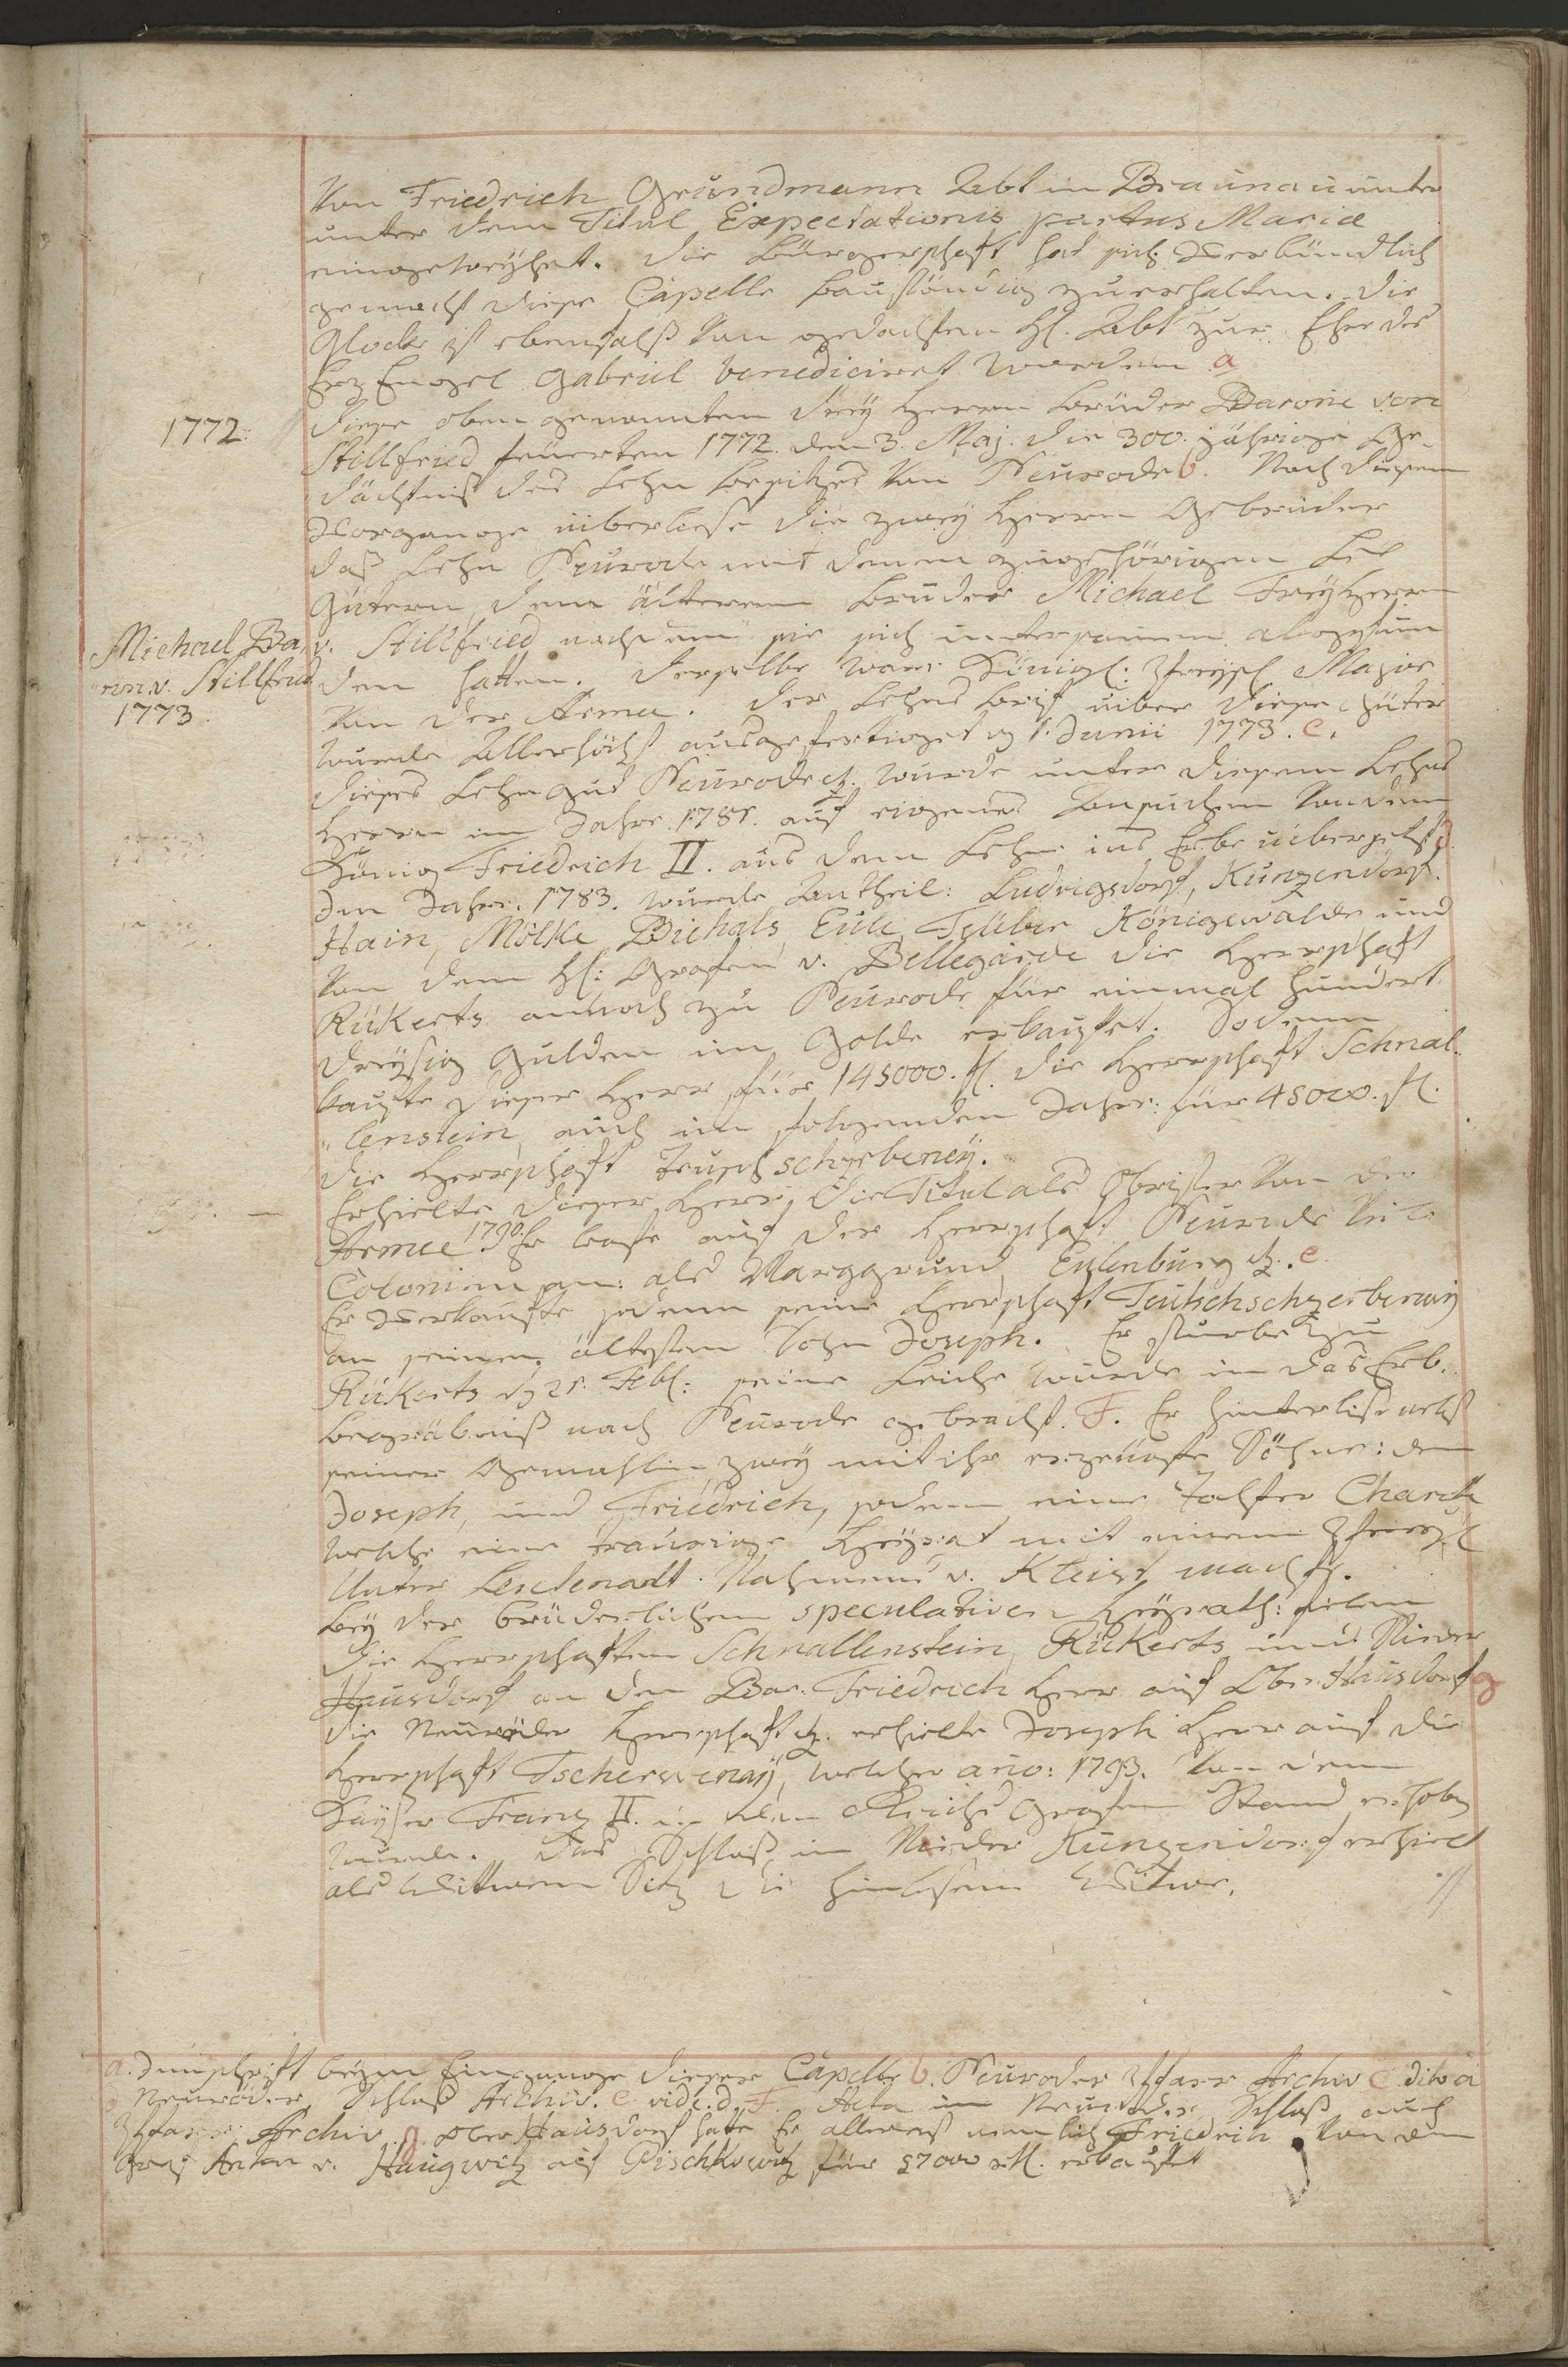 Von Friedrich Grundmann Abbt in Braunau unter
unter dem Titul Expectationis partus Mariæ
eingeweÿhet. Die Bürgerschaft hat sich Verbündlich
gemacht diese Capelle bauständig zuerhalten. Die
Glocke ist ebenfalß Von gedachten H. Abbt zur Ehre des
Erz Engel Gabriel benediciret worden a
1772.
Diese oben genannten dreÿ Herrn Brüder Baronie von
Stillfried feuerten 1772. den 3. Maj. die 300. jährige Ge-
dächtniß des Lehn besitzes Von Neurode b. Nach diesem
Vorgange überließe die zweÿ Herrn Gebrüder
daß Lehn Neurode mit denen zugehörigen
Gütern dem älteren Bruder Michael Freÿherrn
Michael Ba-
ron v. Stillfried
1773.
v. Stillfried nachdem sie sich untersamm abgefun
den hatten. Derselbe war Königl: Preÿß. Major
Von der Armee. Der Lehns brif über diese Güter
wurde Allerhöchst ausgefertiget 1. Junii 1773. c.
Dieses Lehn gut Neurode wurde unter diesem Lehns
Herrn im Jahre 1781. auf eigenes Ansuchen Von dem
König Friedrich II. aus dem Lehn ins Erbe übersetzt d
Im Jahre. 1783. wurde Antheil: Ludwigsdorf, Kunzendorf.
Hain, Mölke Biehals, Eule, Falken Königswalde und
Von dem H: Grafen v. Bellegarde die Herrschaft
Rükerts annoch zu Neurode für einmal hundert
dreÿsig Gulden im Golde erkauffet. Sodann
kaufte dieser Herr für 145000. fl. die Herrschaft Schnal-
lenstein, auch im folgenden Jahre: für 45000. fl.
die Herrschaft Teutschtscherbeneÿ.
Erhielte dieser Herr, die Titul als Obrister Von der
Armee 1790. Er legte auf der Herrschaft Neurode Viele
Colonien an: als Marggrund, Eulenburg e.
Er Verkaufte sodann seine Herrschaft Teutschtscherbeneÿ
an seinen ältesten Sohn Joseph. Er sturbe zu
Rükerts 21. Febl: seine Leiche wurde in das Erb-
begräbniß nach Neurode gebracht. F. Er hinterließ nebst
seiner Gemahlin zweÿ mit ihr erzeugte Söhne: den
Joseph, und Friedrich, sodann eine Tochter
welche eine traurige Heÿrat mit einem
Unter Leutenant Nahmens v. Kleist machte.
Beÿ der brüderlichen speculativen Heÿrath: fielen
die Herrschaften Schnallenstein, Rükerts und Nieder
Hausdorf an den Bar. Friedrich Herr auf Ober Hausdorf g
die Neuroder Herrschaft erhielte Joseph Herr auf die
Herrschaft Tscherbeneÿ, welcher anno: 1793. Von dem
Kaÿser Franz II. in den Reichs Grafen Stand erhoben
wurde. Das Schloß in Nieder Kunzendorf erhielt
als Wittwen Sitz die hinterlassene Witwe.
a. Innschrift beÿm Eingange dieser Capelle b. Neuroder Pfarr Archiv c dito a
Neuroder Schloß Archiv. e vide. d. F. Acta im Neuroder Schloß auch
Pfarr Archiv. g Ober Hausdorf hatte Er allererst nemlich Friedrich Von dem
Graf Anton v. Haugwitz auf Pischkowitz für 57000 fl. erkauft